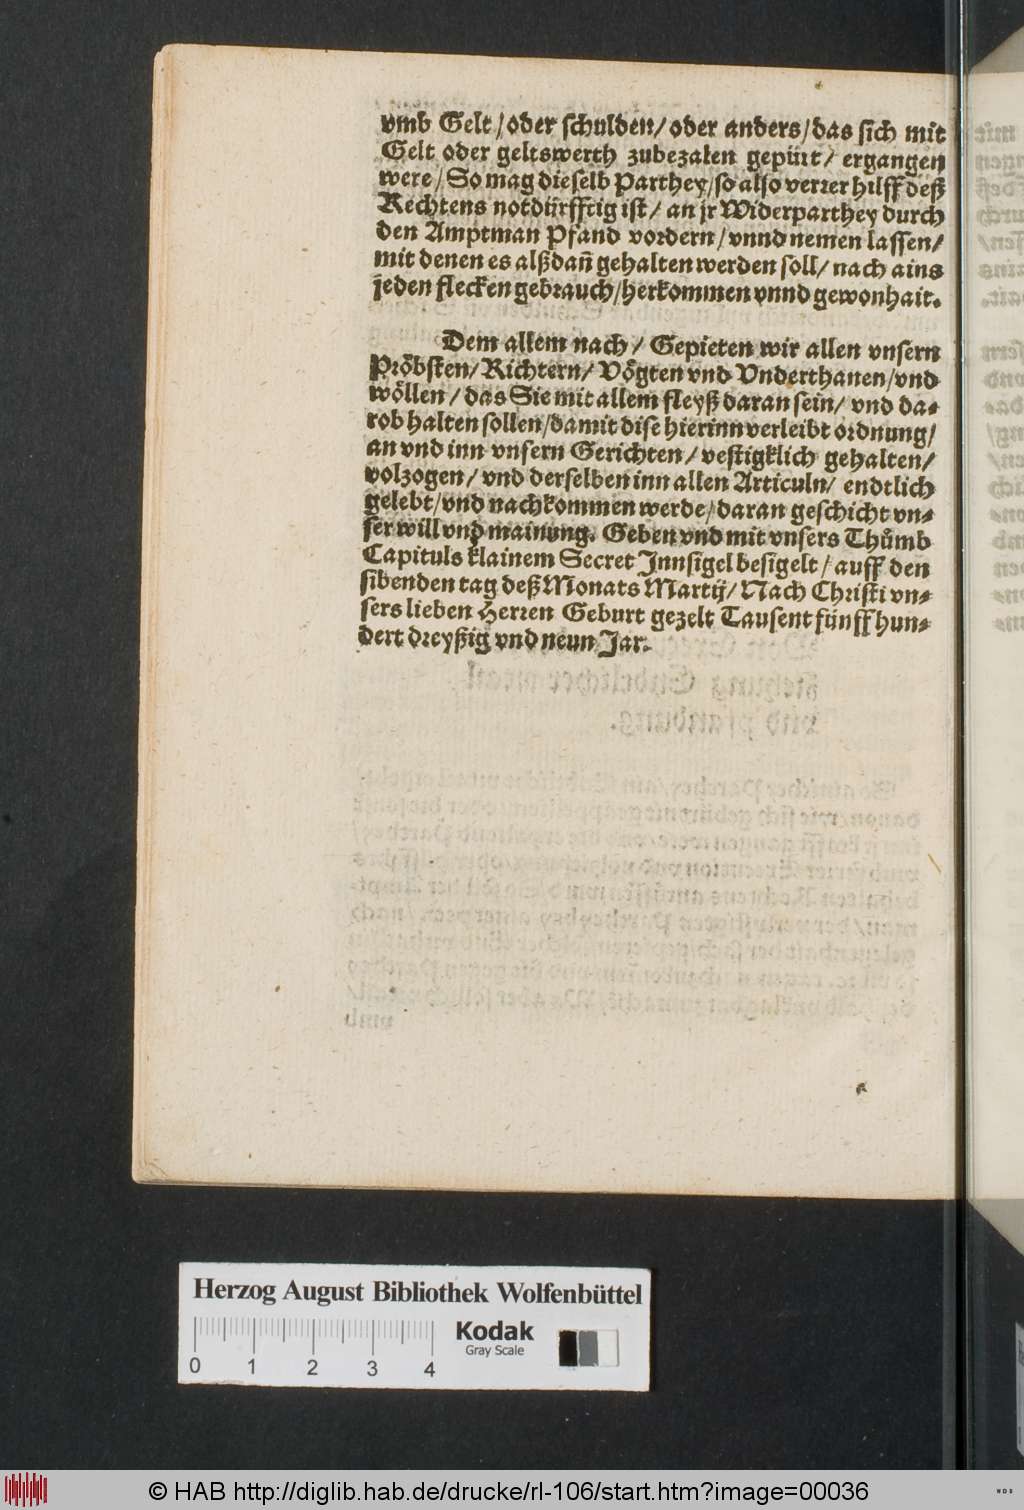 vmb Gelt / oder schulden / oder anders / das sich mit
Gelt oder geltswerth zubezalen gepürt / ergangen
were / So mag dieselb Parthey / so also verrer hilff deß
Rechtens notdürfftig ist / an jr Widerparthey durch
den Amptman Pfand vordern / vnnd nemen lassen /
mit denen es alßdañ gehalten werden soll / nach ains
jeden flecken gebrauch / herkommen vnnd gewonhait.
Dem allem nach / Gepieten wir allen vnsern
Pröbsten / Richtern / Vögten vnd Vnderthanen / vnd
wöllen / das Sie mit allem fleyß daran sein / vnd da-
rob halten sollen / damit dise hierinn verleibt ordnung /
an vnd inn vnsern Gerichten / vestigklich gehalten /
volzogen / vnd derselben inn allen Articuln / endtlich
gelebt / vnd nachkommen werde / daran geschicht vn-
ser will vnd mainung. Geben vnd mit vnsers Thůmb
Capituls klainem Secret Innsigel besigelt / auff den
sibenden tag deß Monats Martij / Nach Christi vn-
sers lieben Herren Geburt gezelt Tausent fünff hun-
dert dreyßig vnd neun Jar.
Herzog August Bibliothek Wolfenbüttel
0 1 2 3 4
Kodak
Gray Scale
© HAB http://diglib.hab.de/drucke/rl-106/start.htm?image=00036